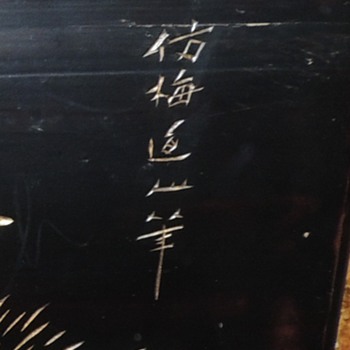 仿梅道人筆